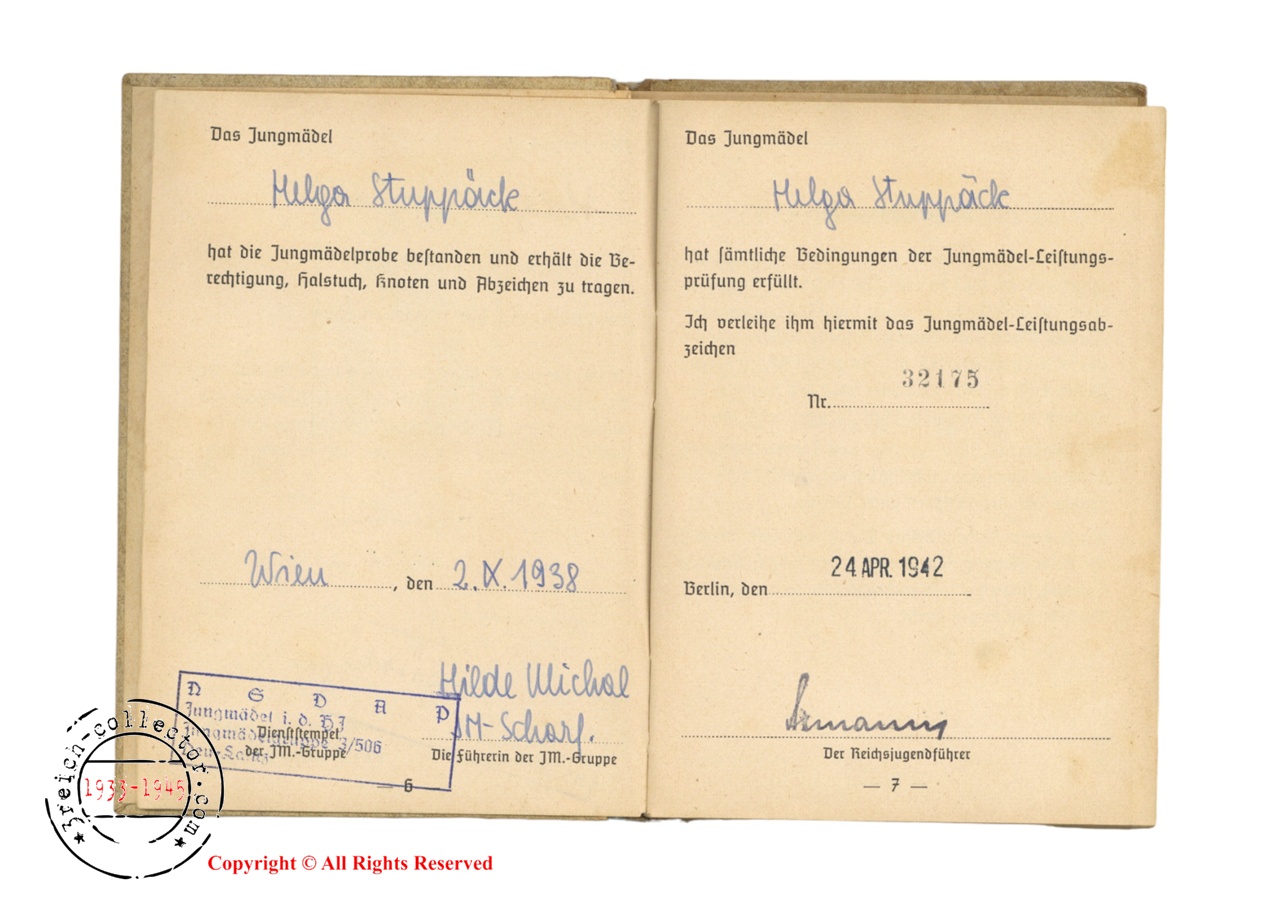 Das Jungmädel
Helga Stuppäck
hat die Jungmädelprobe bestanden und erhält die Be-
rechtigung, Halstuch, Knoten und Abzeichen zu tragen.
Wien, den 2.IX.1938
Hilde Michal
JM-Scharf.
N S D A P
Jungmädel i. d. HJ
Jungmädelgruppe 3/506
Dienststempel
der JM.-Gruppe
Die Führerin der JM.-Gruppe
6
Das Jungmädel
Helga Stuppäck
hat sämtliche Bedingungen der Jungmädel-Leistungs-
prüfung erfüllt.
Ich verleihe ihm hiermit das Jungmädel-Leistungsab-
zeichen
Nr. 32175
Berlin, den 24 APR. 1942
Der Reichsjugendführer
— 7 —
3reich-collector.com
1933-1945
Copyright © All Rights Reserved